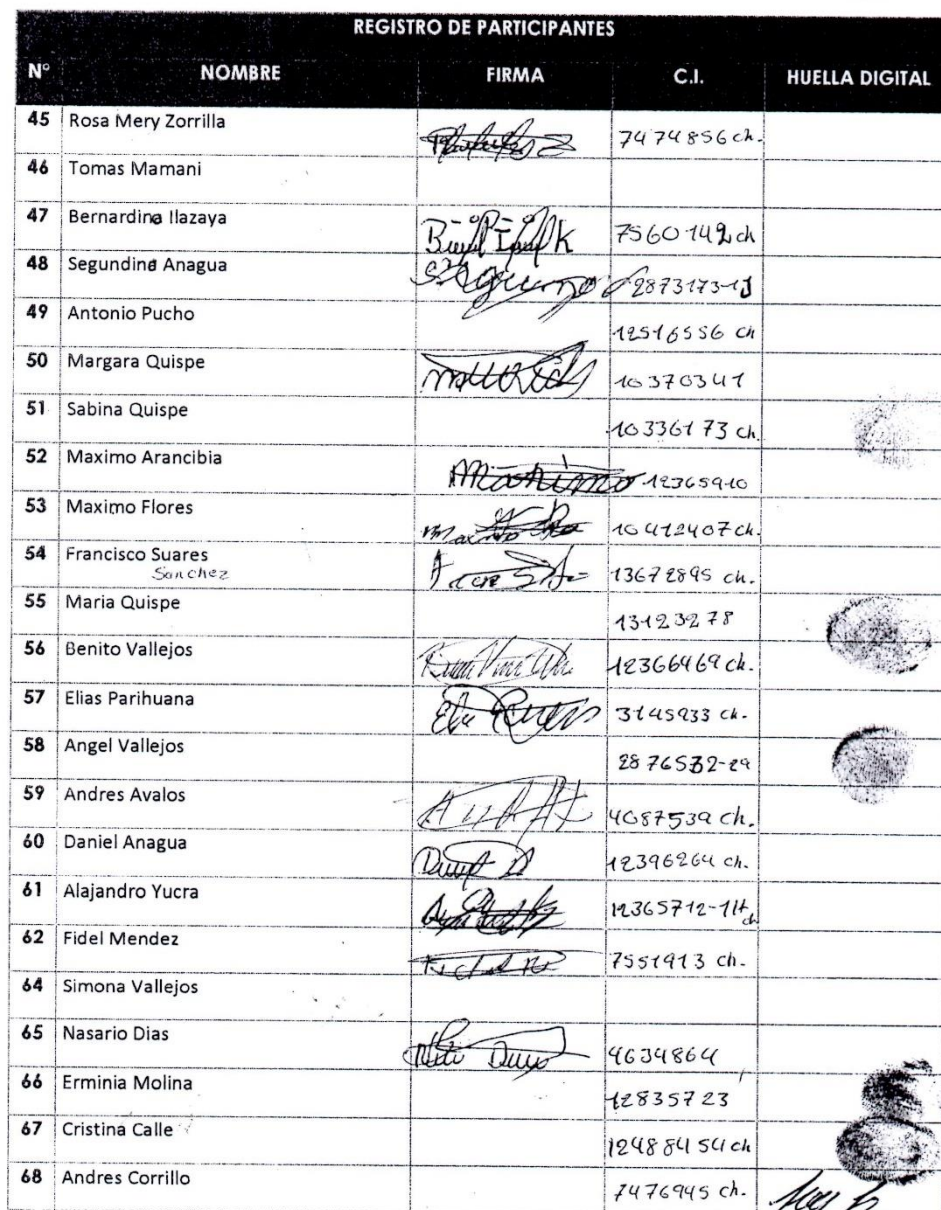 REGISTRO DE PARTICIPANTES
N° NOMBRE FIRMA C.I. HUELLA DIGITAL
45 Rosa Mery Zorrilla 7474856 ch.
46 Tomas Mamani
47 Bernardina Ilazaya 7560142 ch
48 Segundina Anagua 2873173-1J
49 Antonio Pucho 12516556 ch
50 Margara Quispe 10370341
51 Sabina Quispe 10336173 ch.
52 Maximo Arancibia Maximo 12365910
53 Maximo Flores 10412407 ch.
54 Francisco Suares 13672895 ch.
Sanchez
55 Maria Quispe 13123278
56 Benito Vallejos 12366469 ch.
57 Elias Parihuana 3145933 ch.
58 Angel Vallejos 2876532-29
59 Andres Avalos 4087539 ch.
60 Daniel Anagua 12396264 ch.
61 Alajandro Yucra 12365712-1H ch
62 Fidel Mendez 7551913 ch.
64 Simona Vallejos
65 Nasario Dias 4634864
66 Erminia Molina 12835723
67 Cristina Calle 12488454 ch
68 Andres Corrillo 7476945 ch.